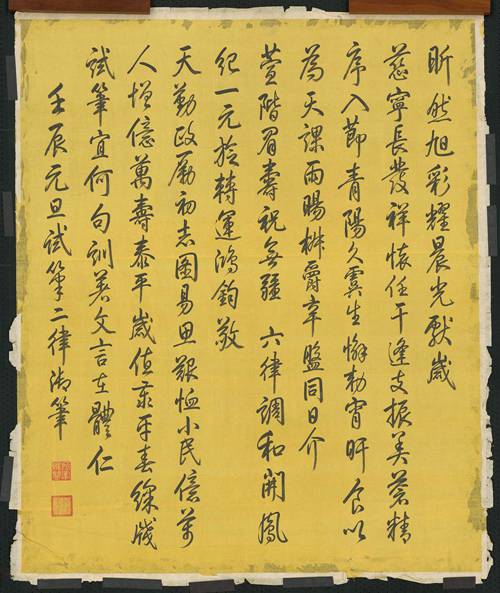 昕然旭彩耀晨光獻歲
慈寧長發祥懷任干逢支振美蒼精
序入節青陽久虞生懈勅宵旰食以
為天課雨暘椒爵辛盤同日介
萱階眉壽祝無疆 六律調和開鳳
紀一元旋轉運鴻鈞敬
天勤政勵初志圖易思艱恤小民億萬
人增億萬壽泰平歲值春綵牋
試筆宜何句訓著文言在體仁
壬辰元旦試筆二律御筆